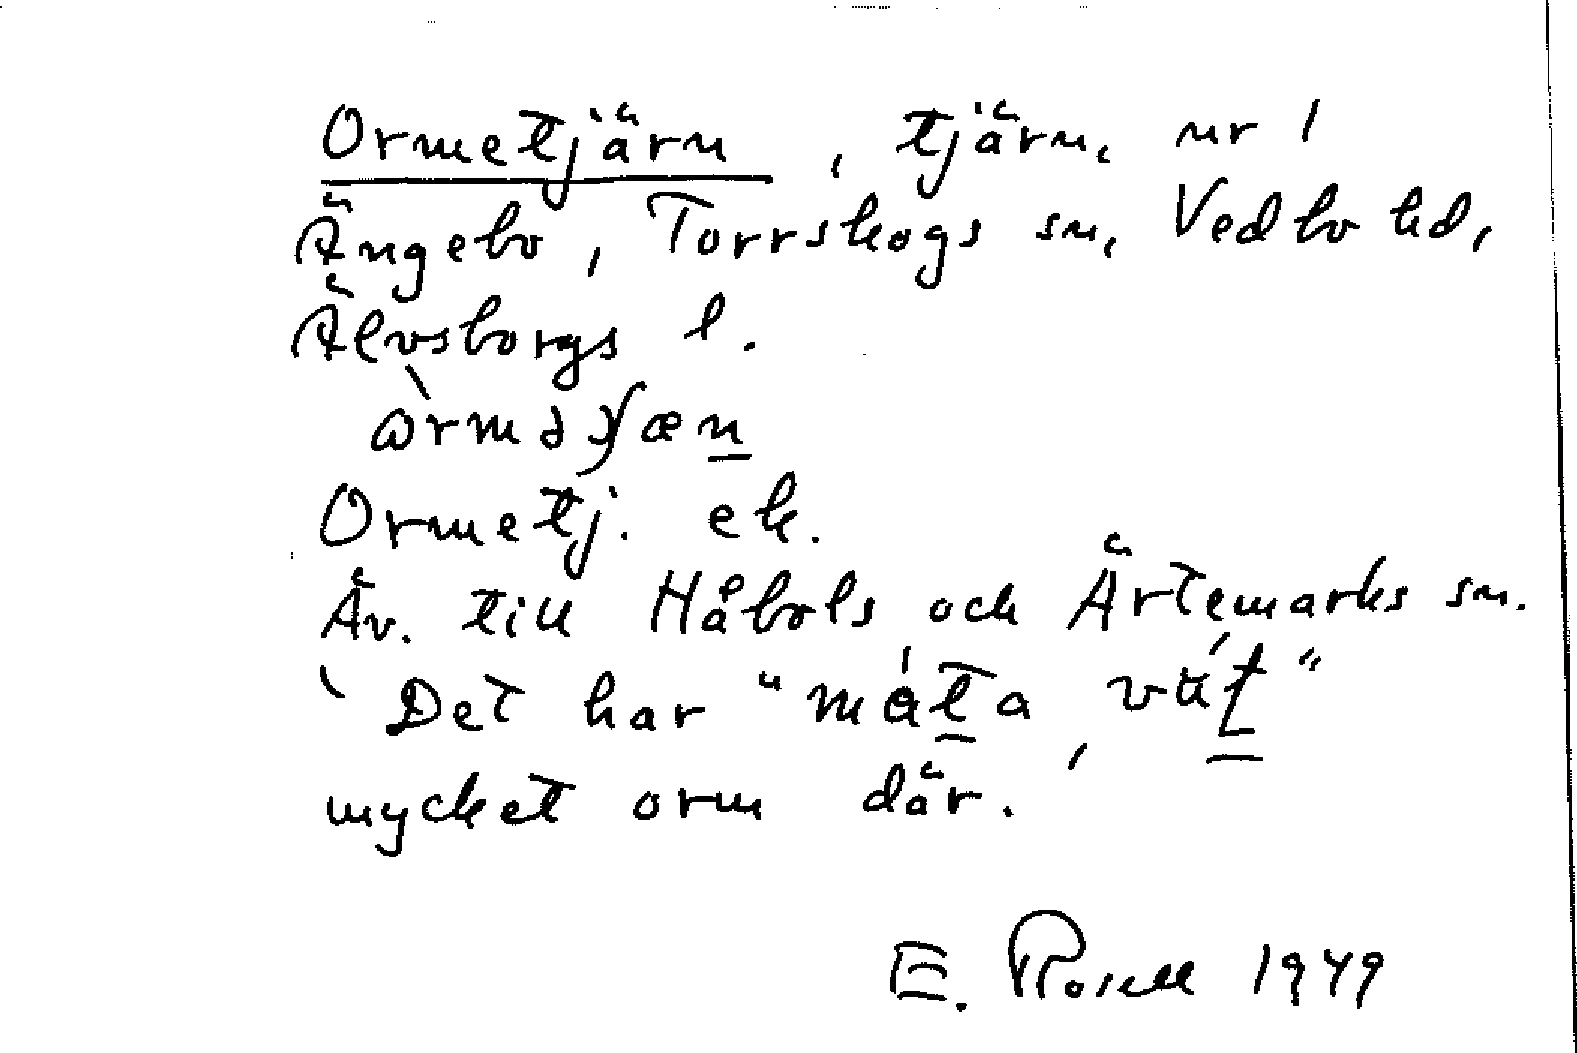 Ormetjärn, tjärn, nr 1
Ängebo, Torrskogs sn, Vedbo hd,
Älvsborgs l.
Ormetj. ek.
Äv. till Håbols och Ärtemarks sn.
Det har "
mycket orm där.
E. Rosell 1949